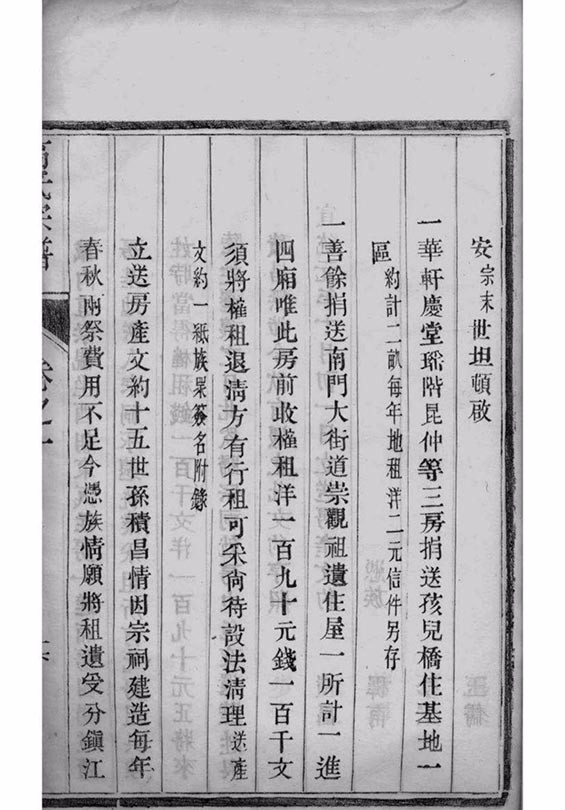 安宗末世坦頓啟
一華軒慶堂瑶階昆仲等三房捐送孩兒橋住基地一
區約計二畝每年地租洋二元信件另存
一善餘捐送南門大街道崇觀祖遺住屋一所計一進
四廂唯此房前收權租洋一百九十元錢一百千文
須將權租退淸方有行租可采尙待設法淸理送產
文約一紙族衆簽名附錄
立送房產文約十五世孫積昌情因宗祠建造每年
春秋兩祭費用不足今憑族情願將祖遺受分鎭江
氏宗譜
卷之一